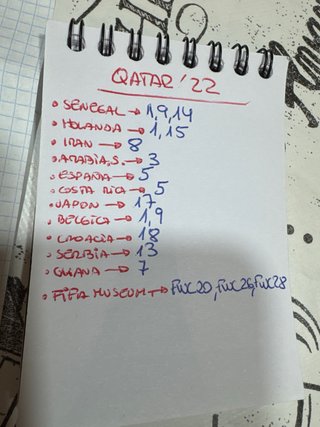 QATAR '22
• SENEGAL → 1, 9, 14
• HOLANDA → 1, 15
• IRAN → 8
• ARABIA, S. → 3
• ESPAÑA → 5
• COSTA RICA → 5
• JAPON → 17
• BELGICA → 1, 9
• CROACIA → 18
• SERBIA → 13
• GHANA → 7
• FIFA MUSEUM → FWC20, FWC26, FWC28